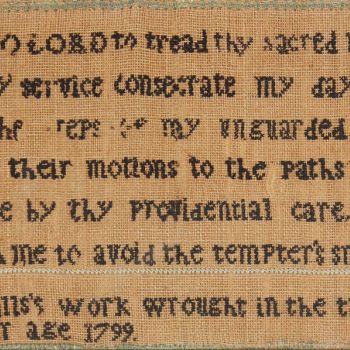 LORD to tread thy sacred
service consecrate my day
my unguarded
their motions to the paths
e by thy providential care
me to avoid the tempter's
work wrought in the t
r age 1799.